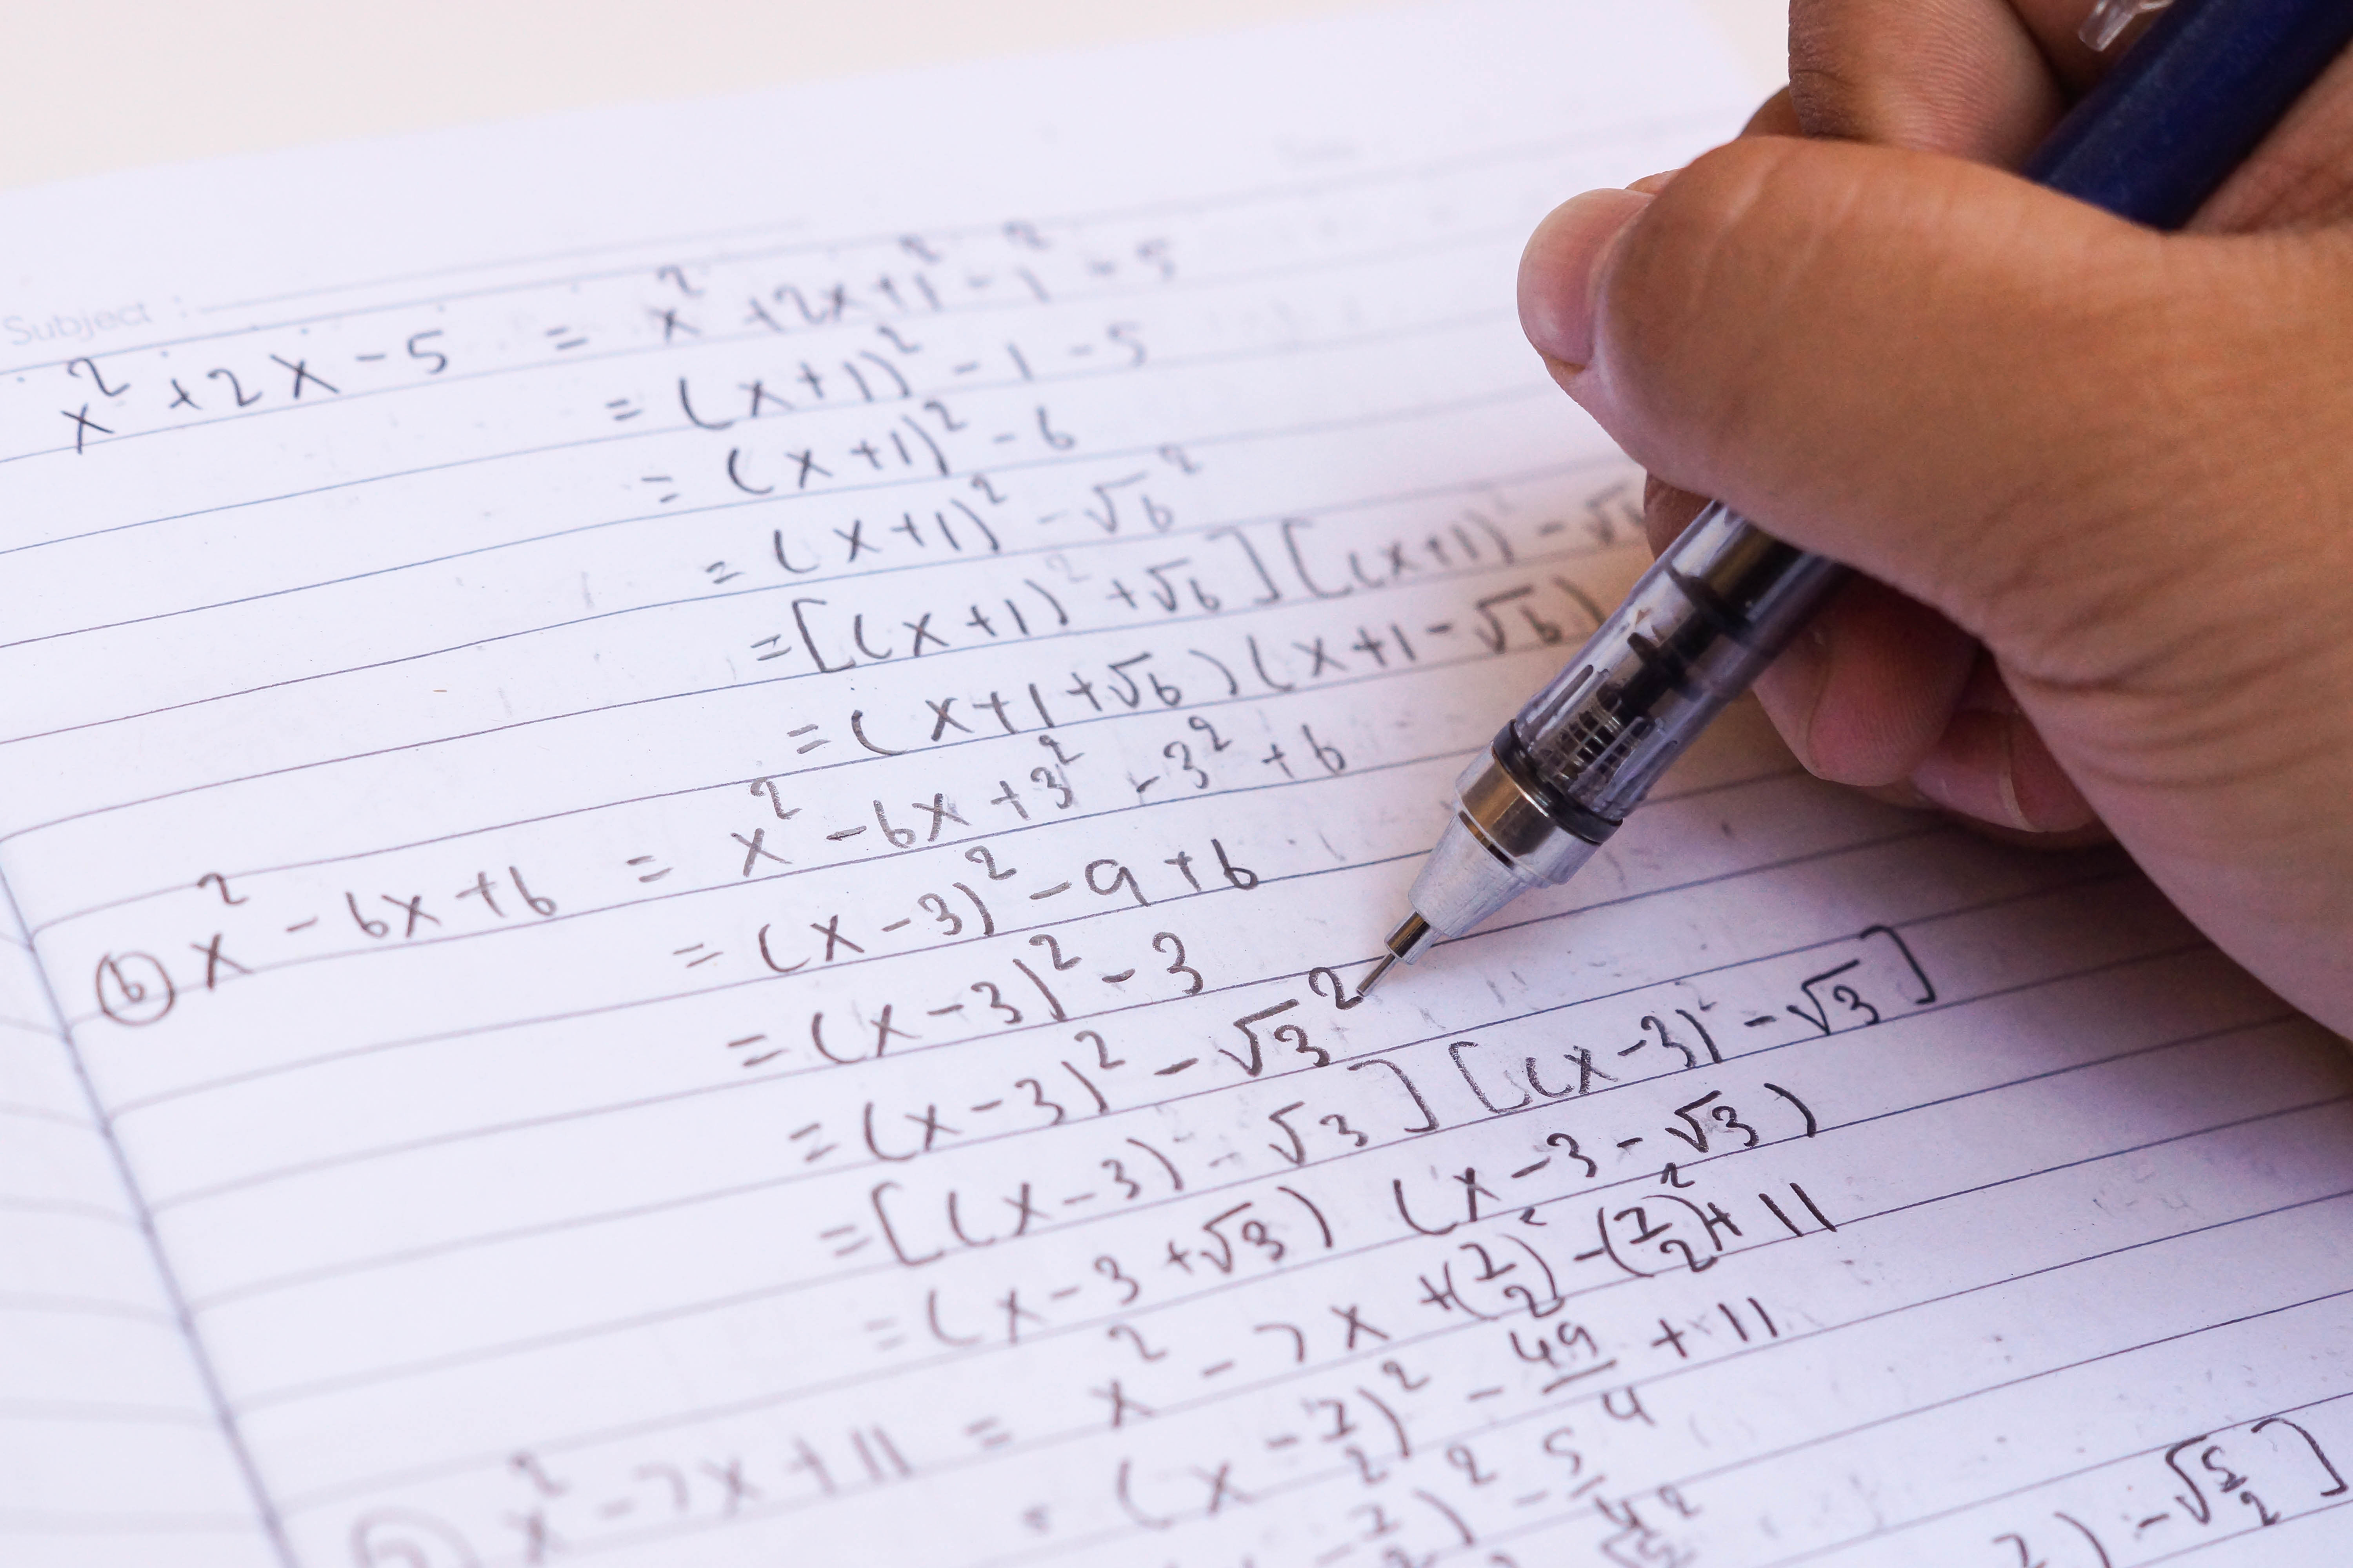 Subject :
x² + 2x - 5 = x² + 2x + 1² - 1² - 5
= (x+1)² - 1 - 5
= (x+1)² - 6
= (x+1)² - √6²
= [(x+1)² + √6] [(x+1)² - √6
= (x+1+√6) (x+1-√6)
ⓑ x² - 6x + 6 = x² - 6x + 3² - 3² + 6
= (x-3)² - 9 + 6
= (x-3)² - 3
= (x-3)² - √3²
= [(x-3)² - √3] [(x-3)² - √3]
= (x-3+√3) (x-3-√3)
x² - 7x + 11 = x² - 7x + (7/2)² - (7/2)² + 11
= (x - 7/2)² - 49/4 + 11
7/2)² - 5/4
) - √5/2]